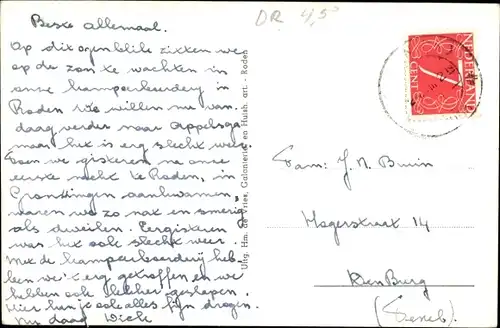 Beste allemaal.
Op dit ogenblik zitten we
op de zon te wachten in
onze kampeerboerderij in
Roden. We willen nu van-
daag verder naar Appelsga
maar het is erg slecht weer.
Toen we gisteren na onze
eerste nacht te Roden, in
Groningen aankwamen,
waren we zo nat en smerig
als dweilen. Eergisteren
was het ook slecht weer.
Met de kampeerboerderij heb-
ben we 't erg getroffen en we
hebben ook lekker geslapen.
Hier kun je ook alles fijn drogen.
Nu daag Wich
Uitg. Hm. de Vries, Galanterie en Huish. art. - Roden
DR 4,5
NEDERLAND
1 CENT
Fam: J. N. Bruin
Hogerstraat 14
Den Burg
(Texel)